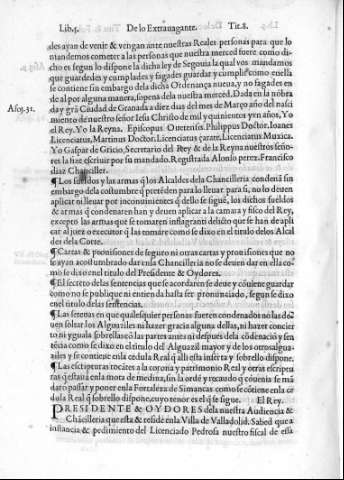 Lib.5. De lo Extrauagante. Tit.8.
ales ayan de venir & vengan ante nuestras Reales personas para que lo
mandemos cometer a las personas que nuestra merced fuere como di-
cho es segun lo dispone la dicha ley de Segouia la qual vos mandamos
que guardedes y cumplades y fagades guardar y cumplir como en ella
se contiene sin embargo dela dicha Ordenança nueua, y no fagades en
de al por alguna manera, so pena dela nuestra merced. Dada en la nõbra
Año.31. da y grã Ciudad de Granada a diez dias del mes de Março año del nasci
miento de nuestro señor Iesu Christo de mil y quinientos y vn años, Yo
el Rey. Yo la Reyna. Episcopus Ouetensis Philippus Doctor. Ioanes
Licenciatus, Martinus Doctor. Licenciatus çarate, Licenciatus Muxica.
Yo Gaspar de Gricio, Secretario del Rey & de la Reyna nuestros seño-
res la fize escriuir por su mandado. Registrada Alonso perez. Francisco
diaz Chanciller.
¶ Los sueldos y las armas q̃ los Alcaldes dela Chancilleria condenã sin
embargo dela costumbre q̃ pretẽden para lo lleuar para si, no lo deuen
aplicar ni lleuar por inconuinientes q̃ dello se sigue, los dichos sueldos
& armas q̃ condenaren han y deuen aplicar a la camara y fisco del Rey,
excepto las armas que se tomaren inflagranti delicto que se han de apli
car al juez o executor q̃ las tomare como se dixo en el titulo delos Alcal
des dela Corte.
¶ Cartas & prouisiones de seguro ni otras cartas y prouisiones que no
se ayan acostumbrado dar en la Chancilleria no se deuen dar en ella co-
mo se dixo en el titulo del Presidente & Oydores.
¶ El secreto delas sentencias que se acordaren se deue y cõuiene guardar
como no se publique ni entienda hasta ser pronunciado, segun se dixo
en el titulo delas sentencias.
¶ Las setenas en que qualesquier personas fueren condenados no las de-
uen soltar los Alguaziles ni hazer gracia alguna dellas, ni hazer concier
to ni yguala sobrellas cõ las partes antes ni despues dela cõdenació y sen
tẽcia como se dixo en el titulo del Alguazil mayor y de los otros algua-
ziles y se contiene en la cedula Real q̃ alli esta inserta y sobrello dispone.
¶ Las escripturas tocãtes a la corona y patrimonio Real y otras escriptu
ras q̃ estauã en la mota de medina, sin la ordẽ y recaudo q̃ conuenia se mã
daro passar y poner en la Fortaleza de Simancas como se cõtiene en la ce
dula Real q̃ sobrello dispone, cuyo tenor es el q̃ se sigue. El Rey.
PRESIDENTE & OYDORES dela nuestra Audiencia &
Chãcilleria que esta & reside en la Villa de Valladolid. Sabed que a
instancia & pedimiento del Licenciado Pedrosa nuestro fiscal de essa